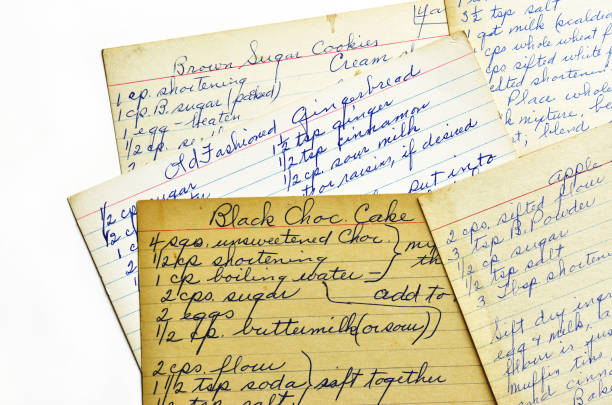 Brown Sugar Cookies
1 cp. shortening
Cream
1 cp. B. sugar (packed)
1 egg - beaten
1/2 cp.
3 1/2 tsp salt
1 qt milk (scalded
cps whole wheat f
cps sifted white f
melted shortening
Place whole
mixture, b
blend
Old Fashioned Gingerbread
1/2 cp. sugar
1 1/2 tsp ginger
1/2 cp.
1/2 tsp cinnamon
1 c
1/2 cp. sour milk
raisins, if desired
put into
Black Choc. Cake
4 sqs. unsweetened Choc.
1/2 cp shortening
1 cp. boiling water
2 cps. sugar
add to
2 eggs
1/2 cp. buttermilk (or sour)
2 cps. flour
1 1/2 tsp soda
sift together
1/2 tsp salt
apple
2 cps. sifted flour
3 tsp B. Powder
1/2 cp sugar
1/2 tsp salt
3 Tbsp shorteni
Sift dry ingr
egg & milk, a
flour is jus
muffin tins
and cinna
Bake